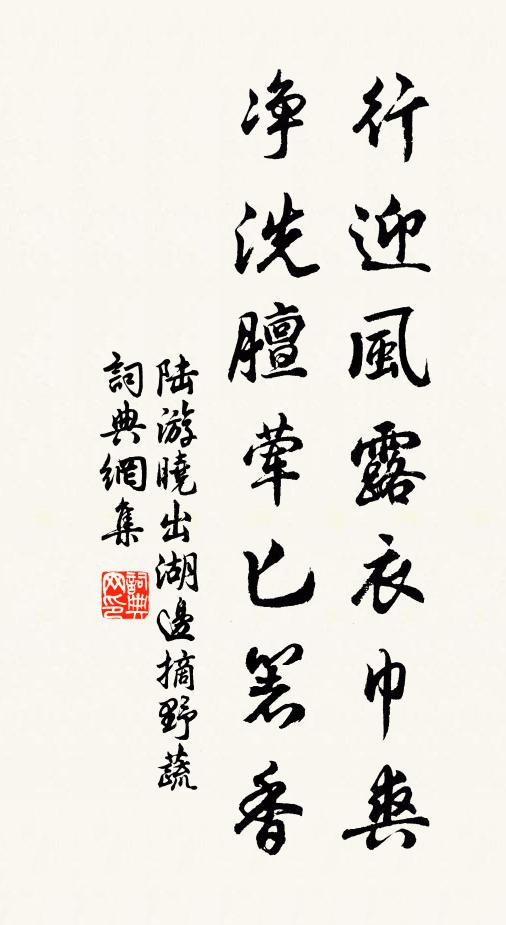 行迎風露衣巾爽
净洗膻荤匕箸香
陆游曉出湖邊摘野蔬
詞典網集
詞典网印